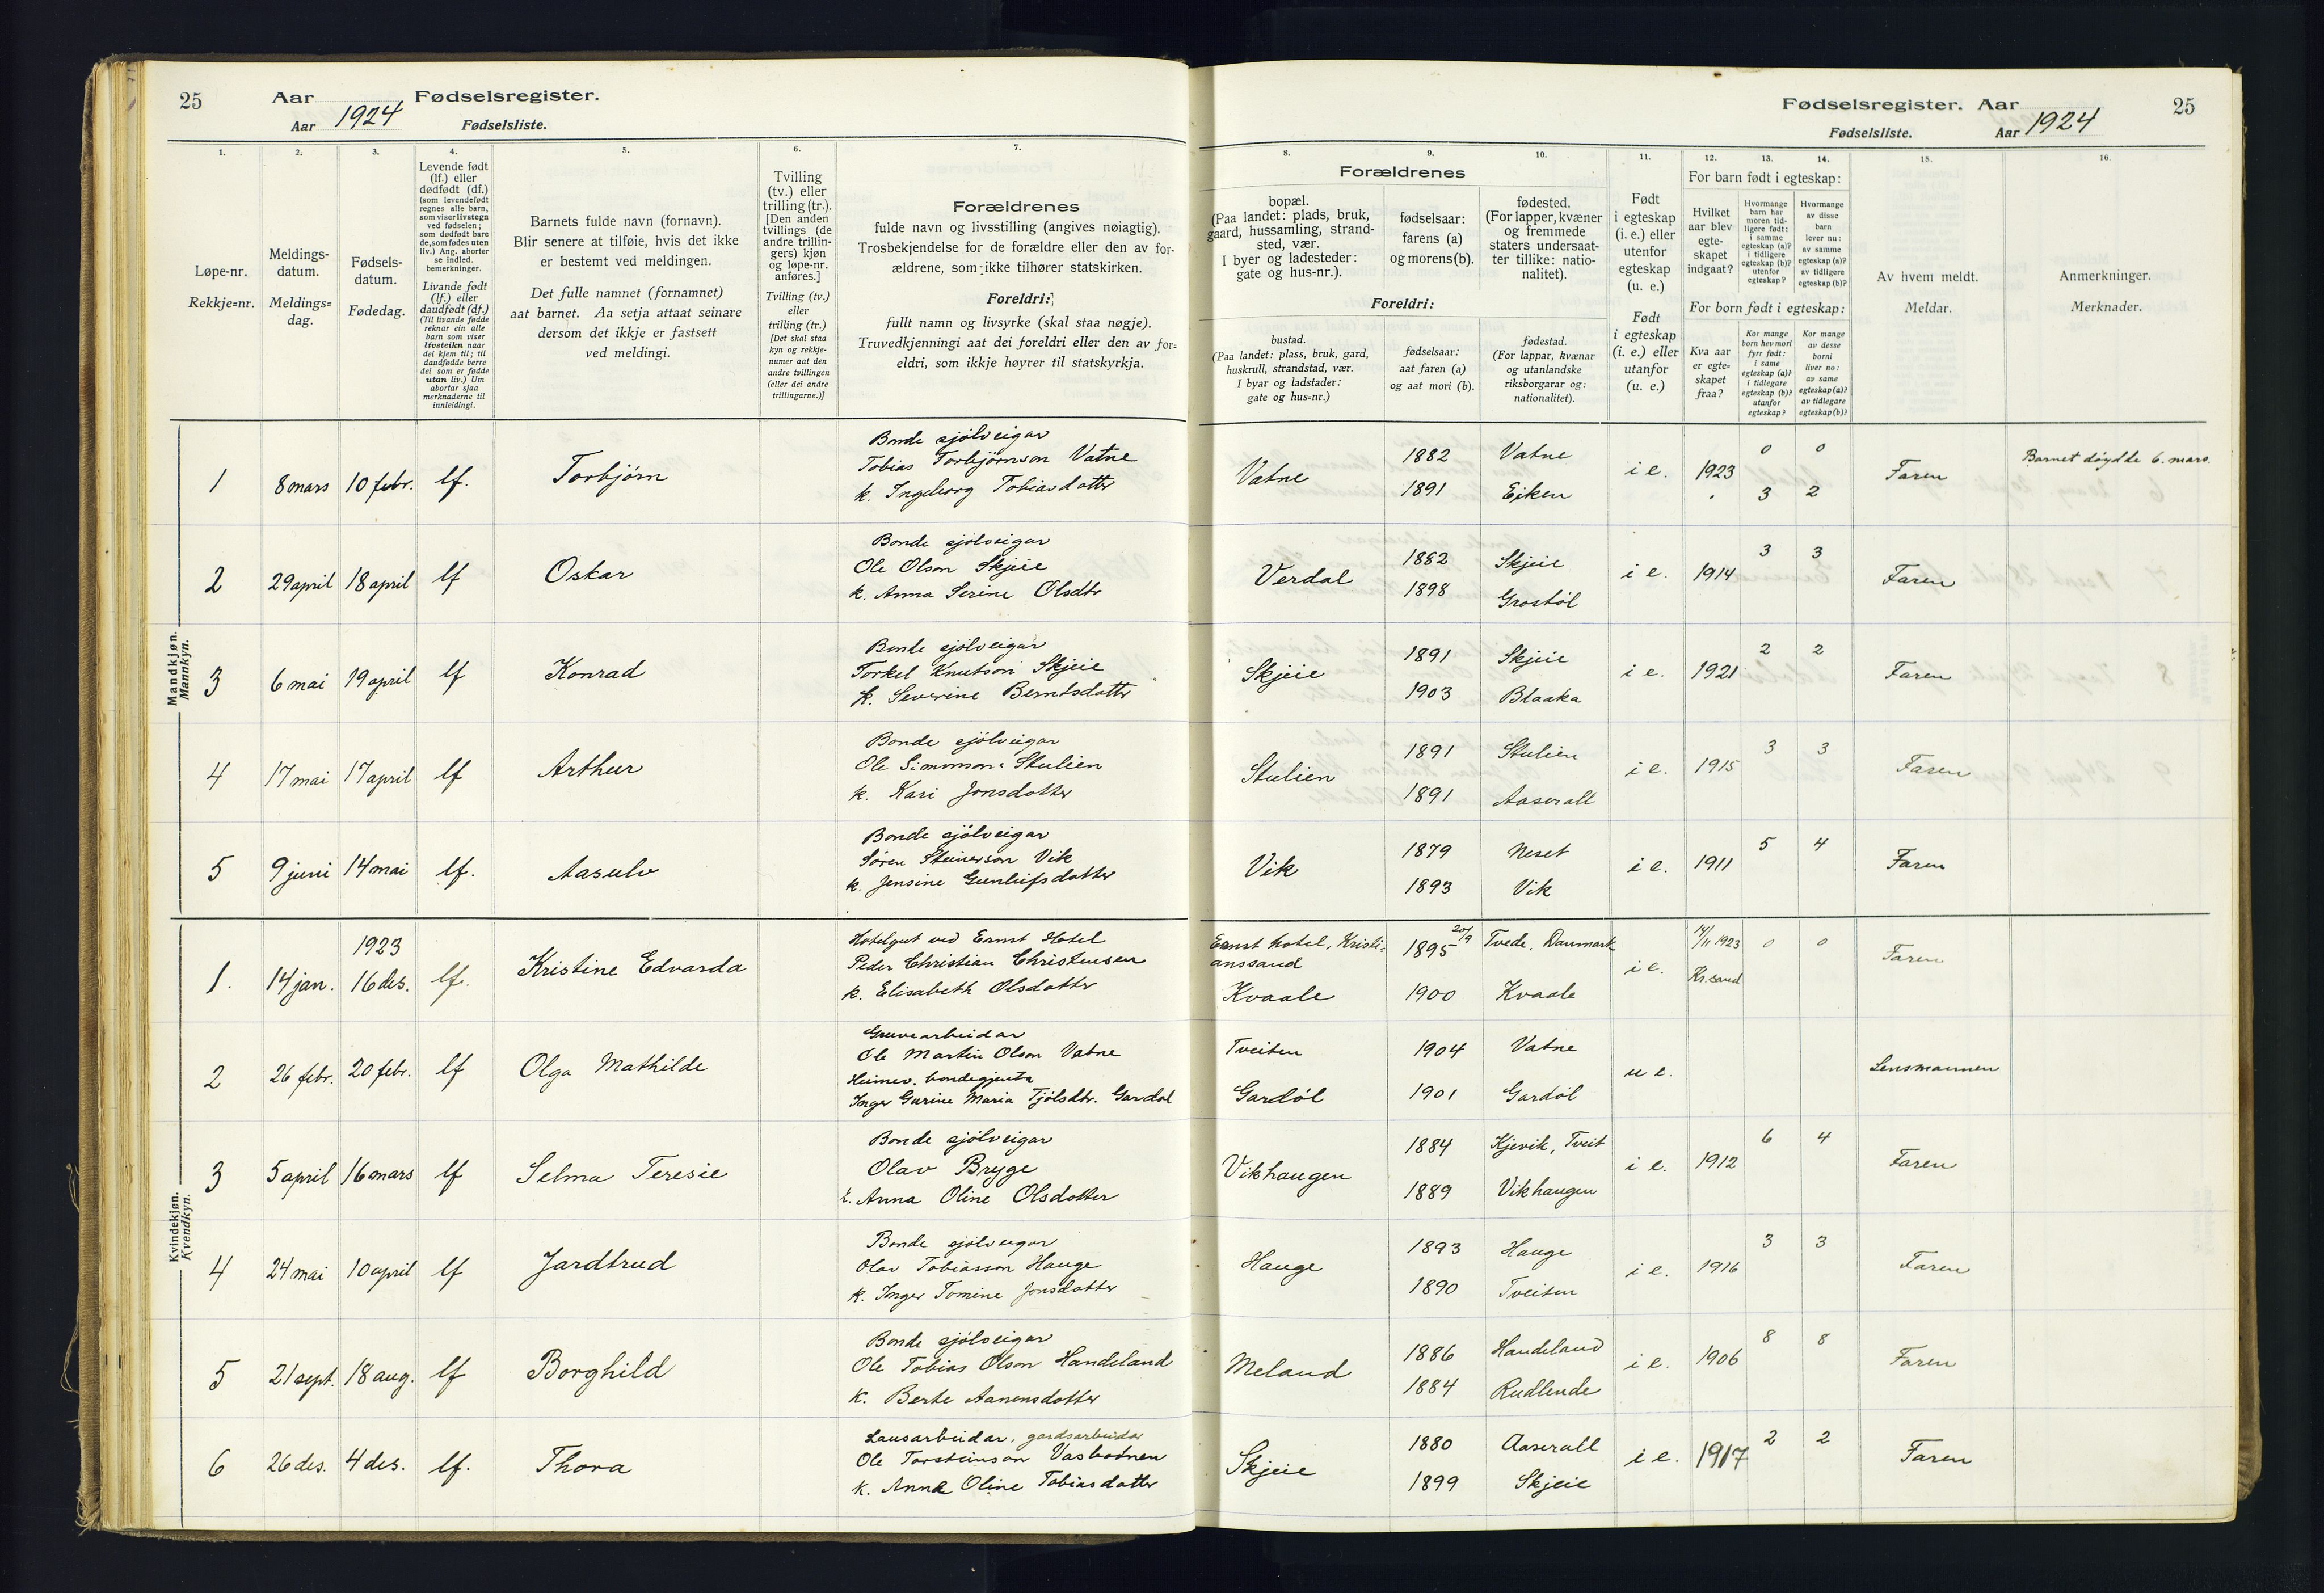 25 Aar Fødselsregister.
Aar 1924 Fødselsliste.
Fødselsregister. Aar 25
Fødselsliste. Aar 1924
1. 2. 3. 4. 5. 6. 7.
Løpe-nr.
Rekkje=nr.
Meldings-
datum.
Meldings=
dag.
Fødsels-
datum.
Fødedag.
Levende født
(lf.) eller
dødfødt (df.)
(som levendefødt
regnes alle barn,
som viser livstegn
ved fødselen;
som dødfødt bare
de, som fødes uten
liv.) Ang. aborter
se indled.
bemerkninger.
Livande født
(lf.) eller
daudfødt (df.)
(Til livande fødde
reknar ein alle
barn som viser
livsteikn naar
dei kjem til; til
daudfødde berre
dei som er fødde
utan liv.) Um
abortar sjaa
merknaderne til
innleidingi.
Barnets fulde navn (fornavn).
Blir senere at tilføie, hvis det ikke
er bestemt ved meldingen.
Det fulle namnet (fornamnet)
aat barnet. Aa setja attaat seinare
dersom det ikkje er fastsett
ved meldingi.
Tvilling
(tv.) eller
trilling (tr.).
[Den anden
tvillings (de
andre trillin-
gers) kjøn
og løpe-nr.
anføres.]
Tvilling (tv.)
eller
trilling (tr.)
[Det skal staa
kyn og rekkje-
numer aat den
andre tvillingen
(eller dei andre
trillingarne.)]
Forældrenes
fulde navn og livsstilling (angives nøiagtig).
Trosbekjendelse for de forældre eller den av for-
ældrene, som ikke tilhører statskirken.
Foreldri:
fullt namn og livsyrke (skal staa nøgje).
Truvedkjenningi aat dei foreldri eller den av for=
eldri, som ikkje høyrer til statskyrkja.
8. 9. 10. 11. 12. 13. 14. 15. 16.
Forældrenes
bopæl.
(Paa landet: plads, bruk,
gaard, hussamling, strand-
sted, vær.
I byer og ladesteder:
gate og hus-nr.).
fødselsaar:
farens (a)
og morens (b).
fødested.
(For lapper, kvæner
og fremmede
staters undersaat-
ter tillike: natio-
nalitet).
Foreldri:
bustad.
(Paa landet: plass, bruk, gard,
huskrull, strandstad, vær.
I byar og ladstader:
gate og hus=nr.)
fødselsaar:
aat faren (a)
og aat mori (b).
fødestad.
(For lappar, kvænar
og utanlandske
riksborgarar og:
nationalitet).
Født
i egteskap
(i. e.) eller
utenfor
egteskap
(u. e.)
Født
i egteskap
(i. e.) eller
utanfor
(u. e.)
For barn født i egteskap:
Hvilket
aar blev
egte-
skapet
indgaat?
Hvormange
barn har
moren tid-
ligere født:
i samme
egteskap (a)?
i tidligere
egteskap (b)?
utenfor
egteskap?
Hvormange
av disse
barn
lever nu:
av samme
egteskap (a)?
av tidligere
egteskap (b)?
For born født i egteskap:
Kva aar
er egte=
skapet
fraa?
Kor mange
born hev mori
fyrr født:
i same
egteskap (a)?
i tidlegare
egteskap (b)?
utanfor
egteskap?
Kor mange
av desse
borni
liver no:
av same
egteskap (a)?
av tidlegare
egteskap (b)?
Av hvem meldt.
Meldar.
Anmerkninger.
Merknader.
Mandkjøn.
Mannkyn.
1 8 mars 10 febr. lf. Torbjørn
Bonde sjølveigar
Tobias Torbjørnson Vatne
k. Ingeborg Tobiasdotter
Vatne 1882 Vatne i e. 1923 0 0 Faren Barnet døydde 6. mars.
1891 Eiken 3 2
2 29 april 18 april lf Oskar
Bonde sjølveigar
Ole Olson Skjeie
k. Anna Serine Olsdtr
Verdal 1882 Skjeie i e. 1914 3 3 Faren
1898 Grostøl
3 6 mai 19 april lf Konrad
Bonde sjølveigar
Torkel Knutson Skjeie
k. Severine Berntsdotter
Skjeie 1891 Skjeie i e. 1921 2 2 Faren
1903 Blaaka
4 17 mai 17 april lf Arthur
Bonde sjølveigar
Ole Simonson Stulien
k. Kari Jonsdotter
Stulien 1891 Stulien i e. 1915 3 3 Faren
1891 Aaserall
5 9 juni 14 mai lf. Aasulv
Bonde sjølveigar
Søren Steinerson Vik
k. Jensine Gunleifsdotter
Vik 1879 Neset i e. 1911 5 4 Faren
1893 Vik
Kvindekjøn.
Kvendkyn.
1. 14 jan. 1923 16 des. lf. Kristine Edvarda
Hotelgut ved Ernst Hotel
Peder Christian Christensen
k. Elisabeth Olsdotter
Ernst hotel, Kristi=
anssand 1895 20/9 Tvede, Danmark i e. 14/11 1923 0 0 Faren
Kvaale 1900 Kvaale Kr.sand
2 26 febr. 20 febr. lf Olga Mathilde
Gruvearbeidar
Ole Martin Olson Vatne
Heimev. bondegjenta
Inger Gurine Maria Tjølsdtr. Gardøl
Tveiten 1904 Vatne u e. Lensmannen
Gardøl 1901 Gardøl
3 5 april 16 mars lf Selma Teresie
Bonde sjølveigar
Olav Bryge
k. Anna Oline Olsdotter
Vikhaugen 1884 Kjevik, Tveit i e. 1912 6 4 Faren
1889 Vikhaugen
4 24 mai 10 april lf Jardtrud
Bonde sjølveigar
Olav Tobiasson Hauge
k. Inger Tomine Jonsdotter
Hauge 1893 Hauge i e. 1916 3 3 Faren
1890 Tveiten
5 21 sept. 18 aug. lf Borghild
Bonde sjølveigar
Ole Tobias Olson Handeland
k. Berte Aanensdotter
Meland 1886 Handeland i e. 1906 8 8 Faren
1884 Rudlende
6 26 des. 4 des. lf. Thora
Lausarbeidar, gardsarbeidar
Ole Torsteinson Vasbotnen
k. Anna Oline Tobiasdotter
Skjeie 1880 Aaserall i e. 1917 2 2 Faren
1899 Skjeie